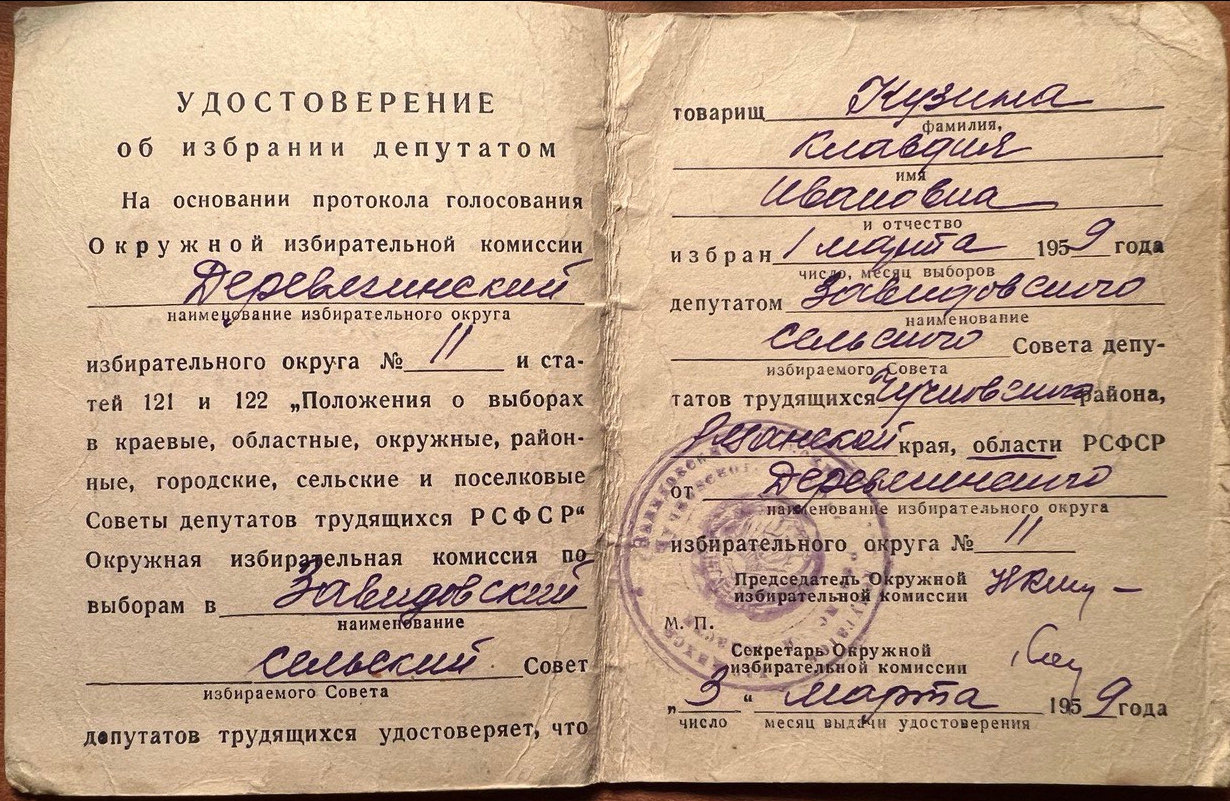 УДОСТОВЕРЕНИЕ
об избрании депутатом
На основании протокола голосования
Окружной избирательной комиссии
Деревягинский
наименование избирательного округа
избирательного округа № 11 и ста-
тей 121 и 122 „Положения о выборах
в краевые, областные, окружные, район-
ные, городские, сельские и поселковые
Советы депутатов трудящихся РСФСР“
Окружная избирательная комиссия по
выборам в Завидовский
наименование
сельский Совет
избираемого Совета
депутатов трудящихся удостоверяет, что
товарищ Кузина
фамилия,
Клавдия
имя
Ивановна
и отчество
избран 1 марта 1959 года
число, месяц выборов
депутатом Завидовского
наименование
сельского Совета депу-
избираемого Совета
татов трудящихся Чучковского района,
Рязанской края, области РСФСР
от Деревягинского
наименование избирательного округа
избирательного округа № 11
Председатель Окружной
избирательной комиссии
М. П.
Секретарь Окружной
избирательной комиссии
„3“ марта 1959 года
число месяц выдачи удостоверения